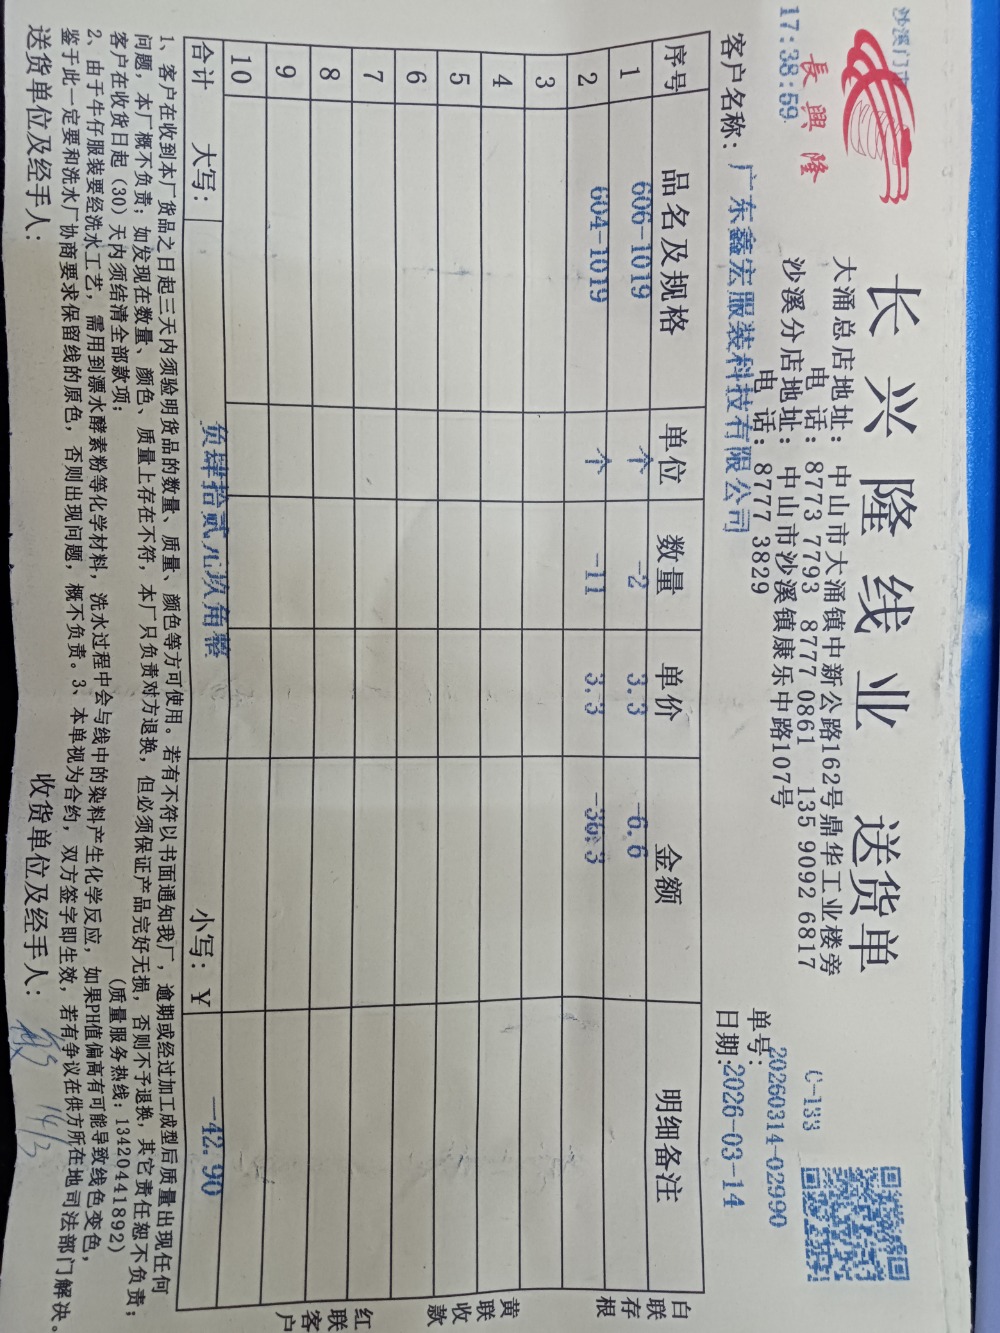 沙溪门市
17:38:59
長興隆
长兴隆线业 送货单
大涌总店地址：中山市大涌镇中新公路162号鼎华工业楼旁
电 话：8773 7793 8777 0861 135 9092 6817
沙溪分店地址：中山市沙溪镇康乐中路107号
电 话：8777 3829
C-133
单号：20260314-02990
日期：2026-03-14
客户名称：广东鑫宏服装科技有限公司
序号 品名及规格 单位 数量 单价 金额 明细备注
1 606-1019 个 -2 3.3 -6.6
2 604-1019 个 -11 3.3 -36.3
3
4
5
6
7
8
9
10
合计 大写： 负肆拾贰元玖角整 小写：¥ -42.90
白联存根
黄联收款
红联客户
1、客户在收到本厂货品之日起三天内须验明货品的数量、质量、颜色等方可使用。若有不符以书面通知我厂，逾期或经过加工成型后质量出现任何
问题，本厂概不负责；如发现在数量、颜色、质量上存在不符，本厂只负责对方退换，但必须保证产品完好无损，否则不予退换，其它责任恕不负责；
客户在收货日起（30）天内须结清全部款项； （质量服务热线：13420441892）
2、由于牛仔服装要经洗水工艺，需用到漂水酵素粉等化学材料，洗水过程中会与线中的染料产生化学反应，如果PH值偏高有可能导致线色变色，
鉴于此一定要和洗水厂协商要求保留线的原色，否则出现问题，概不负责。3、本单视为合约，双方签字即生效，若有争议在供方所在地司法部门解决。
送货单位及经手人： 收货单位及经手人： 14/3